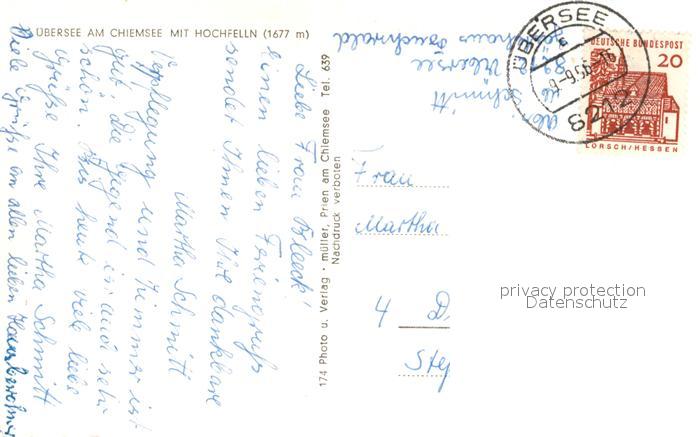 ÜBERSEE AM CHIEMSEE MIT HOCHFELLN (1677 m)
Liebe Frau Bleeck!
Einen lieben Feriengruß
sendet Ihnen Ihre dankbare
Martha Schmitt
Verpflegung und Zimmer ist
gut die Gegend ist auch sehr
schön. Bis heute viele liebe
Grüße Ihre Martha Schmitt
Viele Grüße an allen lieben Hausbewohner
174 Photo u. Verlag · müller, Prien am Chiemsee Tel. 639
Nachdruck verboten
Schmitt
Übersee
Buchwald
ÜBERSEE
8212
DEUTSCHE BUNDESPOST
20
LORSCH/HESSEN
Frau
Martha
4 D
Ste
privacy protection
Datenschutz